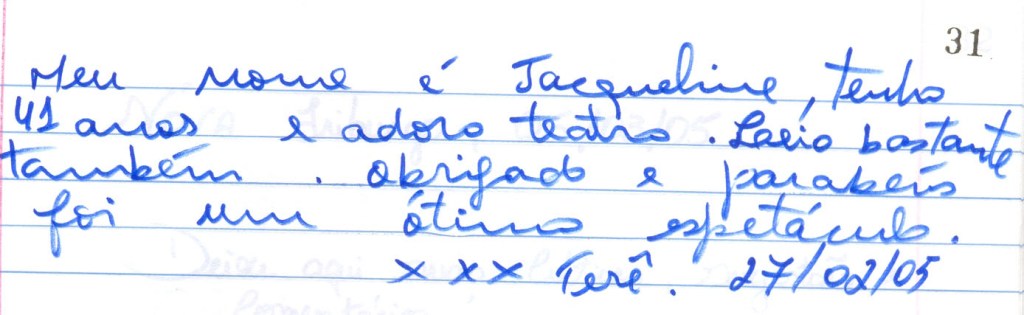 31
Meu nome é Jacqueline, tenho
41 anos e adoro teatro. Saio bastante
também. Obrigado e parabéis
foi um ótimo espetáculo.
xxx Terê. 27/02/05